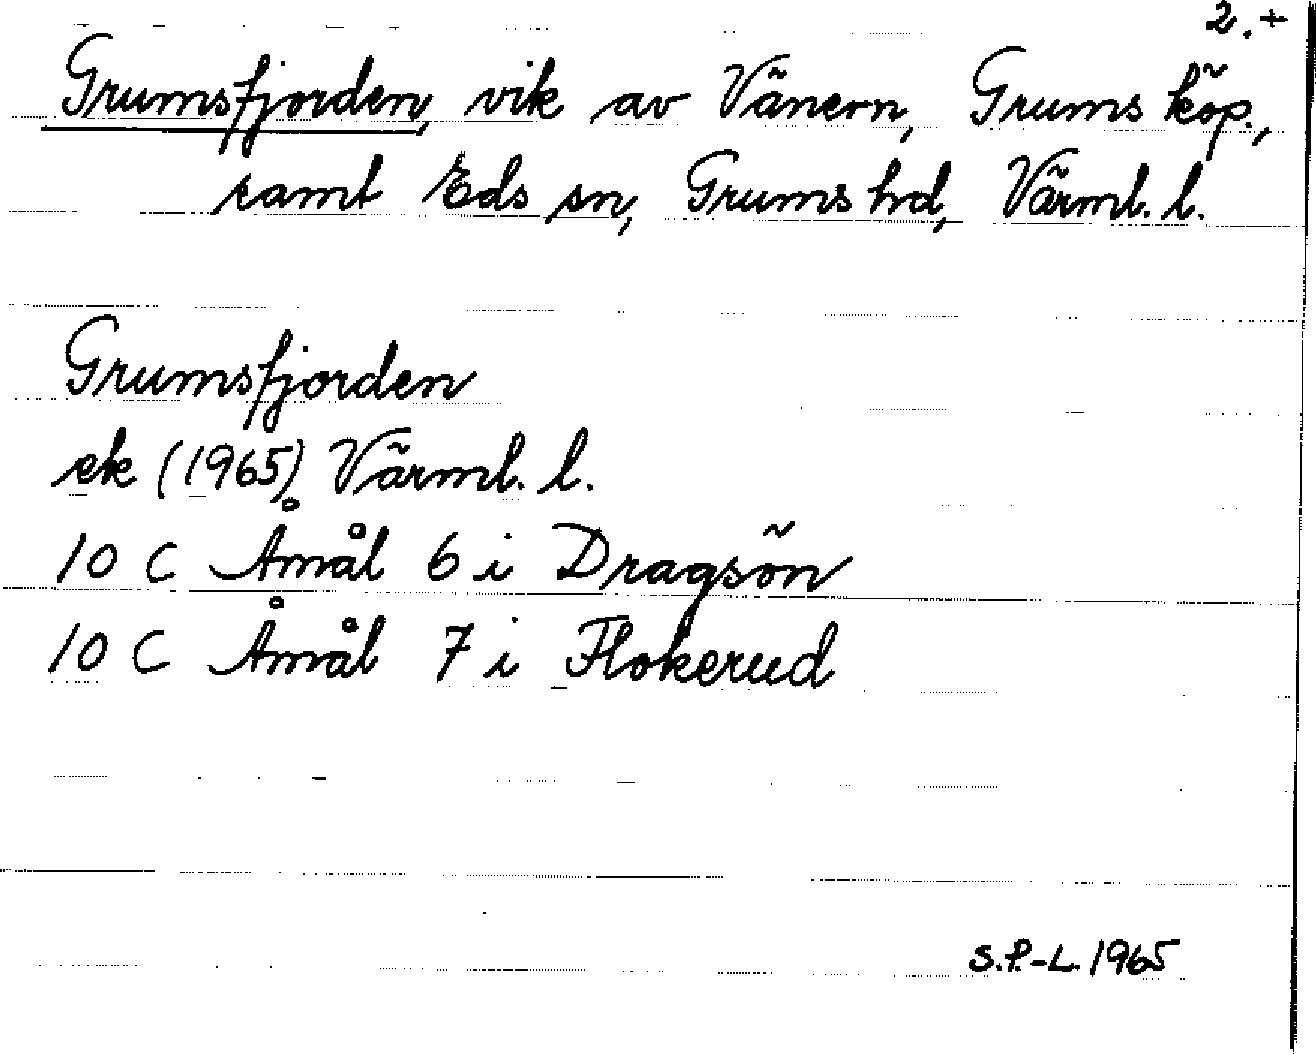 2.+
Grumsfjorden, vik av Vänern, Grums köp.,
samt Eds sn, Grums hd, Värml. l.
Grumsfjorden
ek (1965) Värml. l.
10 C Åmål 6 i Dragsön
10 C Åmål 7 i Flokerud
S.P.-L. 1965